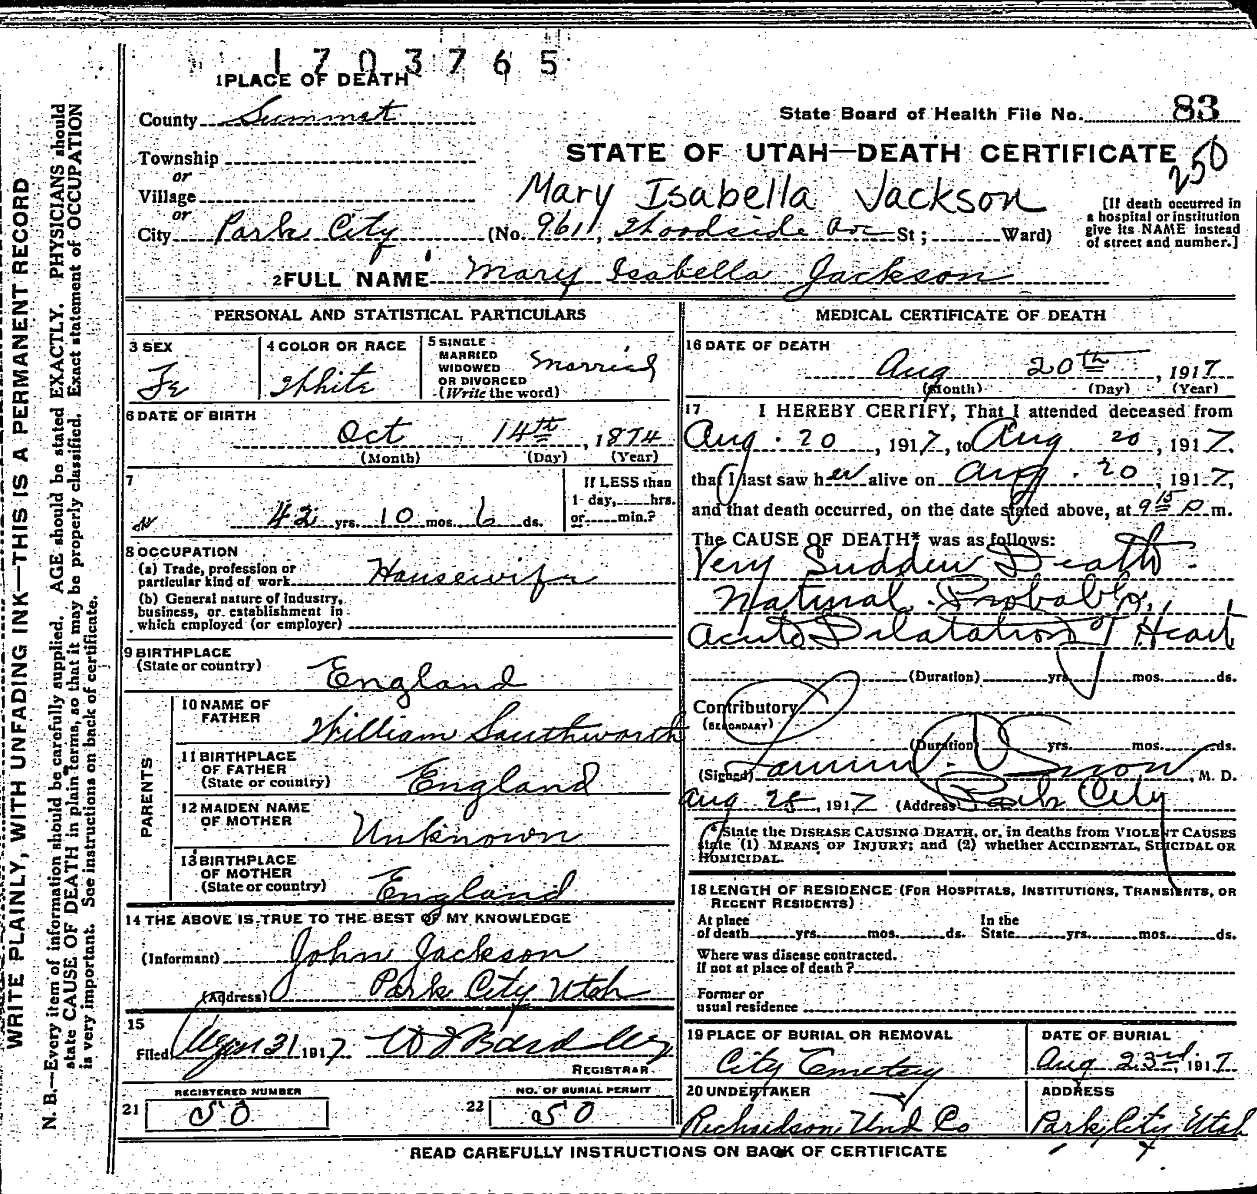 1703765
1 PLACE OF DEATH
County Summit
State Board of Health File No. 83
Township
or
Village
or
City Park City
STATE OF UTAH—DEATH CERTIFICATE
250
Mary Isabella Jackson
(No. 961, Woodside Ave St; Ward)
[If death occurred in
a hospital or institution
give its NAME instead
of street and number.]
2 FULL NAME Mary Isabella Jackson
PERSONAL AND STATISTICAL PARTICULARS
3 SEX
Fe
4 COLOR OR RACE
White
5 SINGLE
MARRIED
WIDOWED
OR DIVORCED
(Write the word)
Married
6 DATE OF BIRTH
Oct 14th, 1874
(Month) (Day) (Year)
7
42 yrs. 10 mos. 6 ds.
If LESS than
1 day, hrs.
or min.?
8 OCCUPATION
(a) Trade, profession or
particular kind of work Housewife
(b) General nature of industry,
business, or establishment in
which employed (or employer)
9 BIRTHPLACE
(State or country) England
PARENTS
10 NAME OF
FATHER William Southworth
11 BIRTHPLACE
OF FATHER
(State or country) England
12 MAIDEN NAME
OF MOTHER Unknown
13 BIRTHPLACE
OF MOTHER
(State or country) England
14 THE ABOVE IS TRUE TO THE BEST OF MY KNOWLEDGE
(Informant) John Jackson
(Address) Park City Utah
15
Filed Aug 31 1917
REGISTRAR
REGISTERED NUMBER
21 50
NO. OF BURIAL PERMIT
22 50
MEDICAL CERTIFICATE OF DEATH
16 DATE OF DEATH
Aug 20th, 1917
(Month) (Day) (Year)
17 I HEREBY CERTIFY, That I attended deceased from
Aug. 20, 1917, to Aug 20, 1917.
that I last saw her alive on Aug. 20, 1917,
and that death occurred, on the date stated above, at 9 15 P m.
The CAUSE OF DEATH* was as follows:
Very Sudden Death -
Natural. Probably,
Acute Dilatation of Heart
(Duration) yrs. mos. ds.
Contributory
(SECONDARY)
(Duration) yrs. mos. ds.
(Signed) Snow, M. D.
Aug 25, 1917 (Address) Park City
* State the DISEASE CAUSING DEATH, or, in deaths from VIOLENT CAUSES
state (1) MEANS OF INJURY; and (2) whether ACCIDENTAL, SUICIDAL OR
HOMICIDAL.
18 LENGTH OF RESIDENCE (FOR HOSPITALS, INSTITUTIONS, TRANSIENTS, OR
RECENT RESIDENTS)
At place
of death yrs. mos. ds.
In the
State yrs. mos. ds.
Where was disease contracted.
If not at place of death?
Former or
usual residence
19 PLACE OF BURIAL OR REMOVAL
City Cemetery
DATE OF BURIAL
Aug 23rd, 1917
20 UNDERTAKER
Richardson Und Co
ADDRESS
Park City Utah
READ CAREFULLY INSTRUCTIONS ON BACK OF CERTIFICATE
WRITE PLAINLY, WITH UNFADING INK—THIS IS A PERMANENT RECORD
N. B.—Every item of information should be carefully supplied. AGE should be stated EXACTLY. PHYSICIANS should
state CAUSE OF DEATH in plain terms, so that it may be properly classified. Exact statement of OCCUPATION
is very important. See instructions on back of certificate.